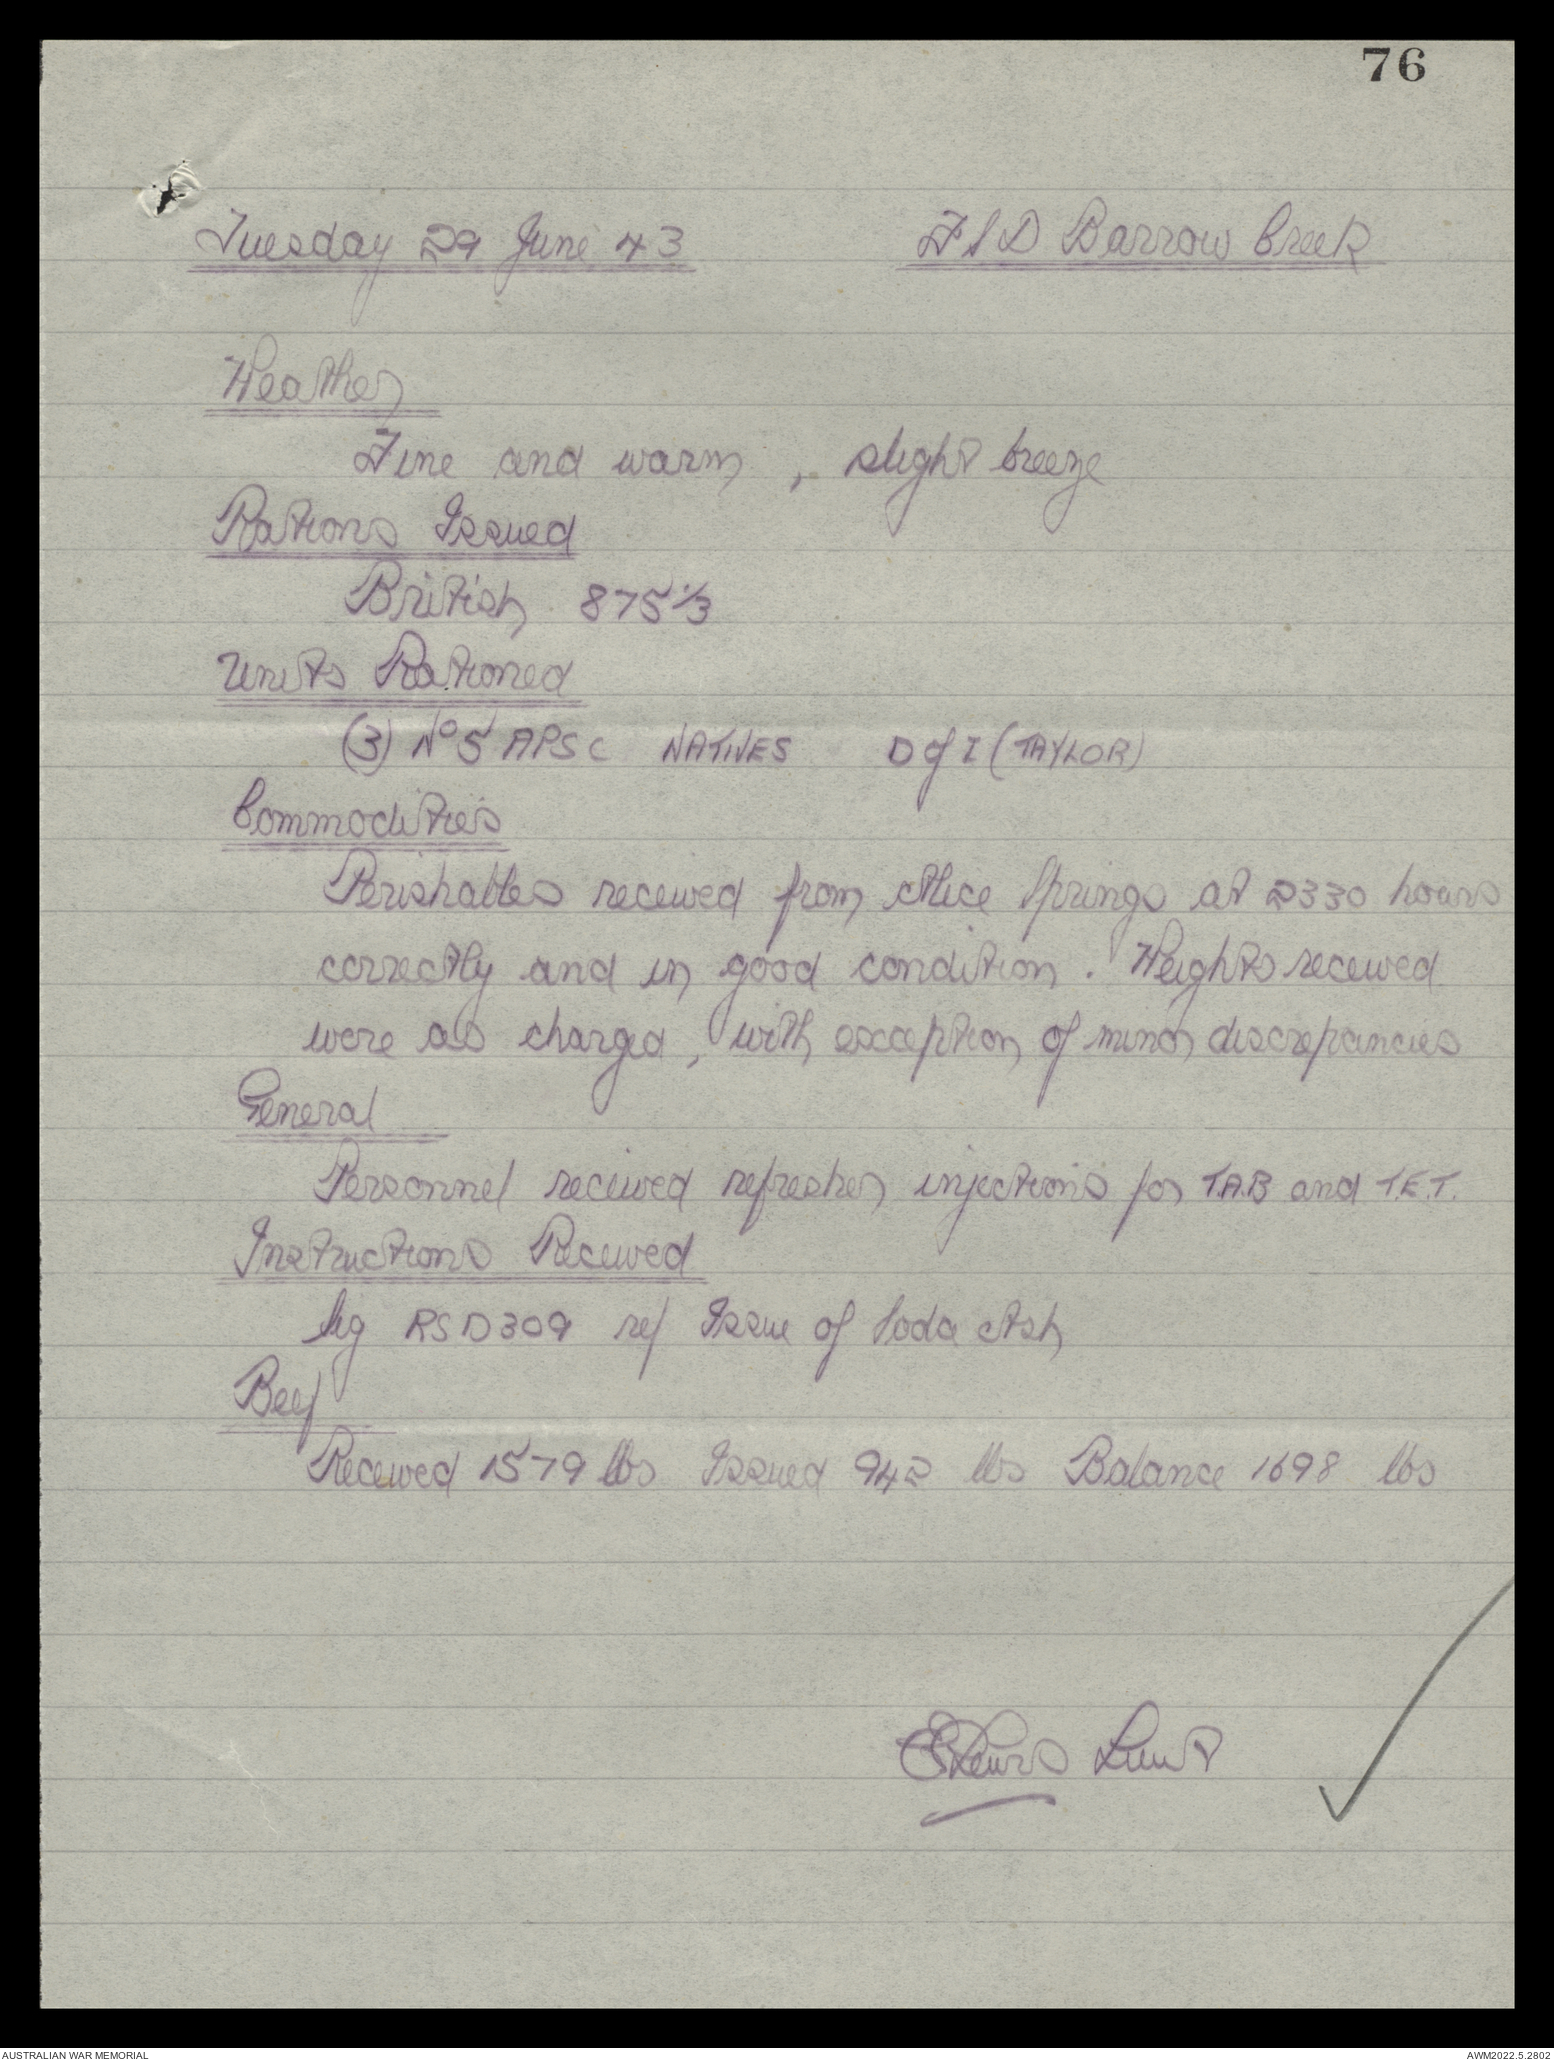 76
Tuesday 29 June 43 FSD Barrow Creek
Weather
Fine and warm, slight breeze
Rations Issued
British 875 1/3
Units Rationed
(3) No 5 APSC NATIVES D of I (TAYLOR)
Commodities
Perishables received from Alice Springs at 2330 hours
correctly and in good condition. Weights received
were as charged, with exception of minor discrepancies
General
Personnel received refresher injections for T.A.B and T.E.T.
Instructions Received
Sig RSD309 re/ Issue of Soda Ash
Beef
Received 1579 lbs Issued 942 lbs Balance 1698 lbs
Lewis Lieut
AUSTRALIAN WAR MEMORIAL AWM2022.5.2802